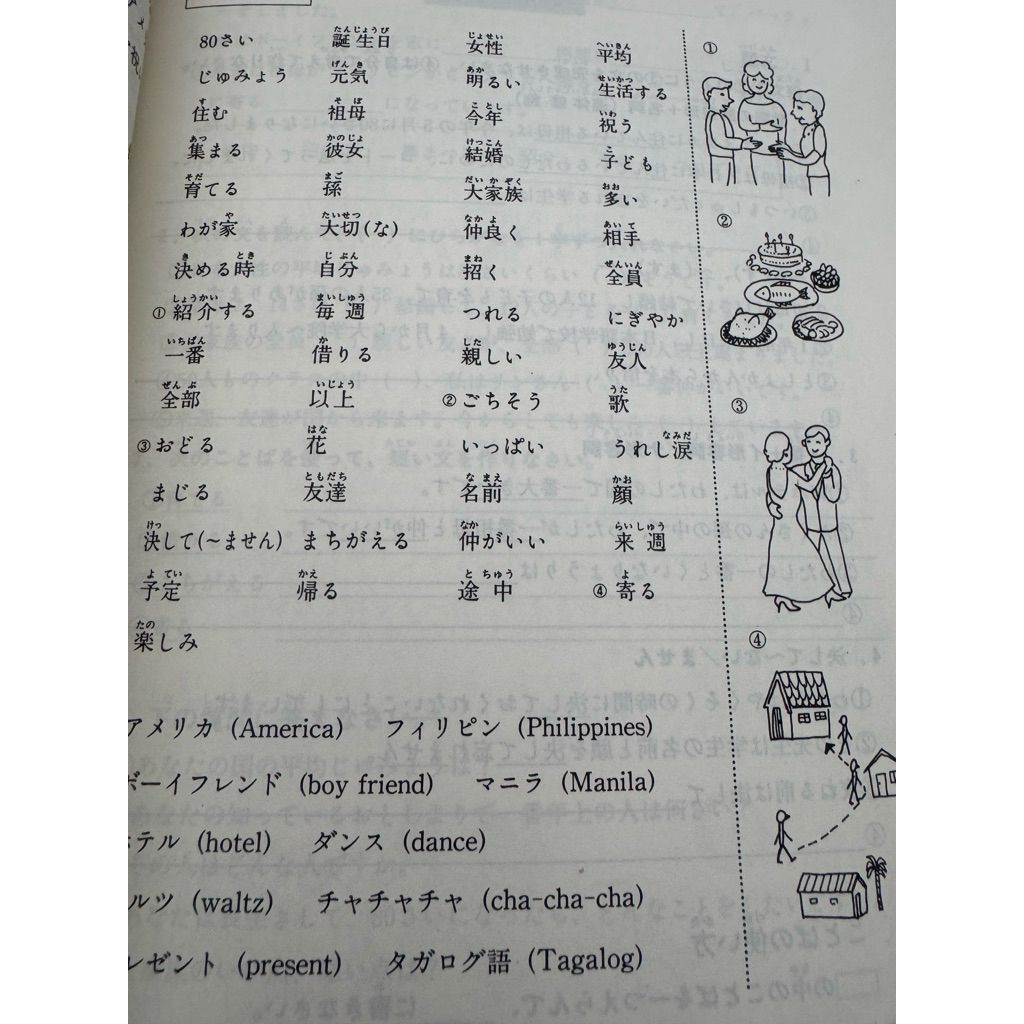 80さい 誕生日 女性 平均
じゅみょう 元気 明るい 生活する
住む 祖母 今年 祝う
集まる 彼女 結婚 子ども
育てる 孫 大家族 多い
わが家 大切(な) 仲良く 相手
決める時 自分 招く 全員
①紹介する 毎週 つれる にぎやか
一番 借りる 親しい 友人
全部 以上 ②ごちそう 歌
③おどる 花 いっぱい うれし涙
まじる 友達 名前 顔
決して(〜ません) まちがえる 仲がいい 来週
予定 帰る 途中 ④寄る
楽しみ
アメリカ (America) フィリピン (Philippines)
ボーイフレンド (boy friend) マニラ (Manila)
テル (hotel) ダンス (dance)
ルツ (waltz) チャチャチャ (cha-cha-cha)
レゼント (present) タガログ語 (Tagalog)
①
②
③
④